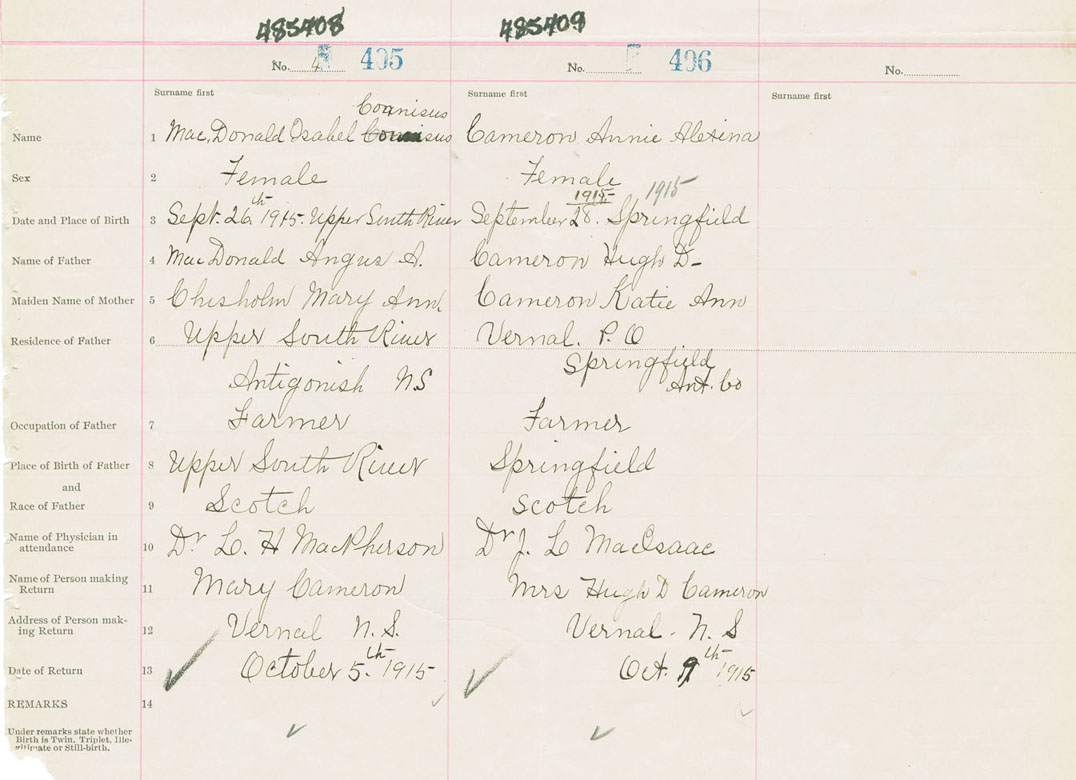 485408 485409
No. 4 405 No. 406 No.
Surname first Surname first Surname first
Connisus
Name 1 MacDonald Isabel Cameron Annie Alexina
Sex 2 Female Female
1915 1915
Date and Place of Birth 3 Sept. 26th 1915. Upper South River September 28. Springfield
Name of Father 4 MacDonald Angus A. Cameron Hugh D-
Maiden Name of Mother 5 Chisholm Mary Ann Cameron Katie Ann
Residence of Father 6 Upper South River Vernal. P.O
Springfield
Antigonish N.S Ant. Co
Occupation of Father 7 Farmer Farmer
Place of Birth of Father 8 Upper South River Springfield
and
Race of Father 9 Scotch Scotch
Name of Physician in
attendance 10 Dr L. H MacPherson Dr J. L MacIsaac
Name of Person making
Return 11 Mary Cameron Mrs Hugh D Cameron
Address of Person mak-
ing Return 12 Vernal N.S. Vernal - N. S
Date of Return 13 October 5.th 1915 Oct. 9th 1915
REMARKS 14
Under remarks state whether
Birth is Twin, Triplet, Ille-
gitimate or Still-birth.